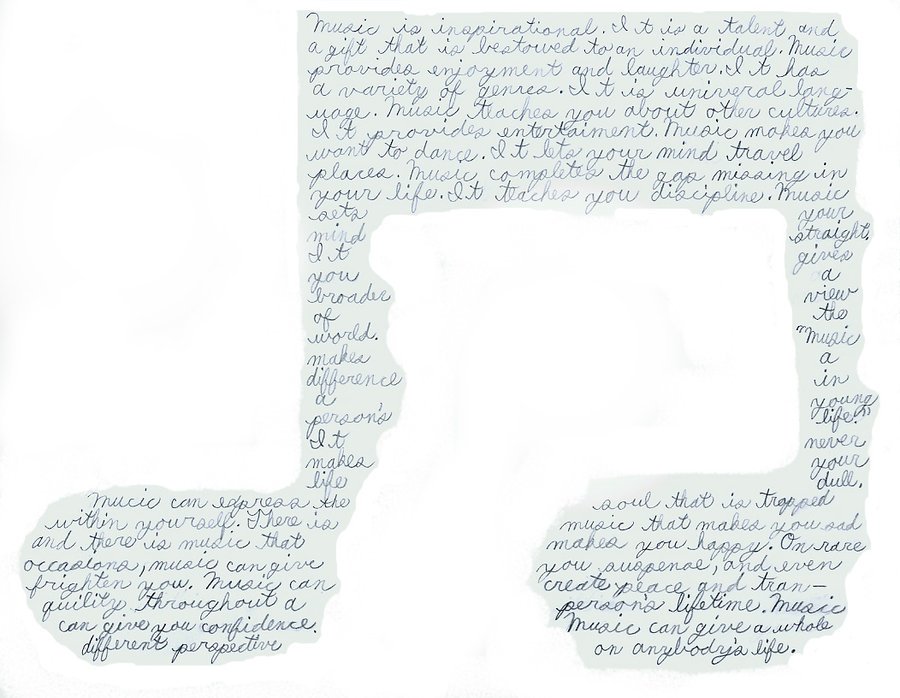 Music is inspirational. It is a talent and
a gift that is bestowed to an individual. Music
provides enjoyment and laughter. It has
a variety of genres. It is univeral lang-
uage. Music teaches you about other cultures.
It provides entertaiment. Music makes you
want to dance. It lets your mind travel
places. Music completes the gap missing in
your life. It teaches you discipline. Music
sets your
mind straight.
It gives
you a
broader view
of the
world. "Music
makes a
difference in
a young
person's life."
It never
makes your
life dull.
Music can express the soul that is trapped
within yourself. There is music that makes you sad
and there is music that makes you happy. On rare
occasions, music can give you suspense, and even
frighten you. Music can create peace and tran-
quility throughout a person's lifetime. Music
can give you confidence. Music can give a whole
different perspective on anybody's life.